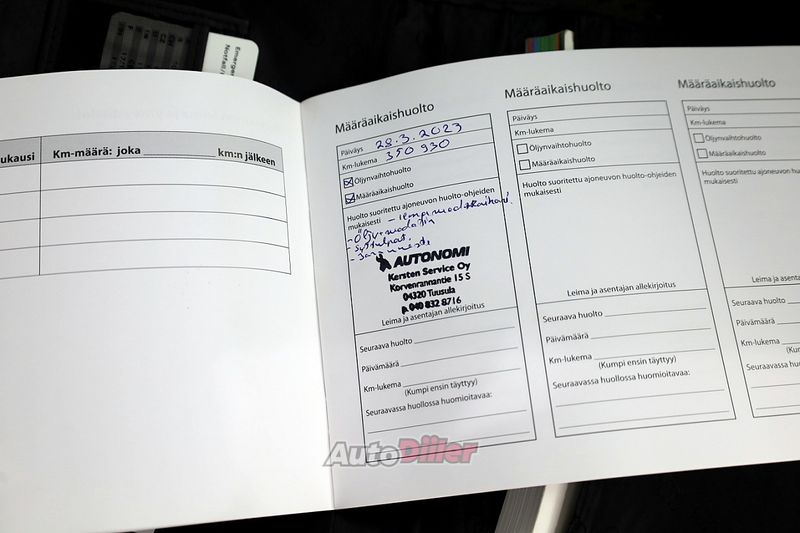 Emergen
Notfall
ukausi
Km-määrä: joka km:n jälkeen
Määräaikaishuolto
Päiväys 28.3.2023
Km-lukema 350 930
Öljynvaihtohuolto
Määräaikaishuolto
Huolto suoritettu ajoneuvon huolto-ohjeiden
mukaisesti
- Öljy+suodatin
- Sytytulpat.
- Jarruneste
AUTONOMI
Kersten Service Oy
Korvenrannantie 15 S
04320 Tuusula
p. 040 832 8716
Leima ja asentajan allekirjoitus
Seuraava huolto
Päivämäärä
Km-lukema
(Kumpi ensin täyttyy)
Seuraavassa huollossa huomioitavaa:
Määräaikaishuolto
Päiväys
Km-lukema
Öljynvaihtohuolto
Määräaikaishuolto
Huolto suoritettu ajoneuvon huolto-ohjeiden
mukaisesti
Leima ja asentajan allekirjoitus
Seuraava huolto
Päivämäärä
Km-lukema
(Kumpi ensin täyttyy)
Seuraavassa huollossa huomioitavaa:
Määräaikaishuolto
Päiväys
Km-lukema
Öljynvaihtohuolto
Määräaikaishuolto
Huolto suoritettu ajoneuvon hu
mukaisesti
Leima ja asentaj
Seuraava huolto
Päivämäärä
Km-lukema
(Kum
Seuraavassa huolloss
AutoDiller